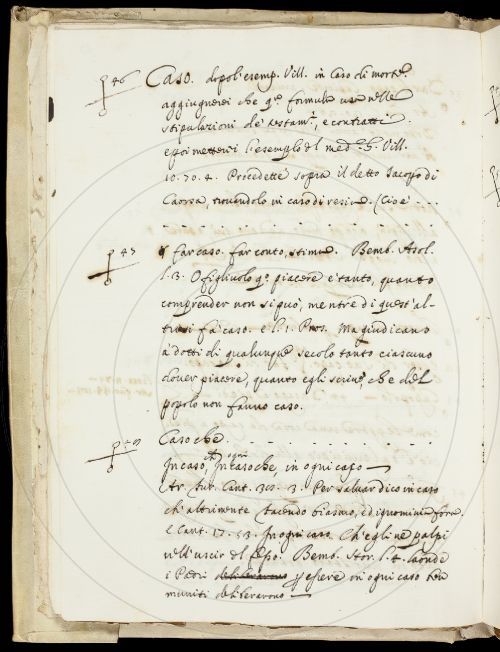 46 Caso. dopo l'esemp. Vill. in Caso di morte.
aggiugnerei che q.º formula usa nelle
stipulazioni de' testam.ti, e contratti.
e poi metterei l'esemplo del med.º G. Vill.
10. 70. 4. Procedette sopra il detto Iacopo di
Caorsa, trovandolo in caso di resia. (Cioè ...
47 far caso. far conto, stima. Bemb. Asol.
l. 3. O figliuolo q.º piacere è tanto, quanto
comprender non si può, mentre di quest' al-
tri si fa caso. e l. 1. Pros. Ma giudicano
i dotti di qualunque secolo tanto ciascuno
dover piacere, quanto egli scrive, che del
popolo non fanno caso.
Caso che. - - - - - - - -
In caso, ch' In caso che, in ogni caso —
Ar. Fur. Cant. 3. Per salvar dico in caso
ch' altrimente facendo biasmo, ed ignominia forse.
e Cant. 17. 53. In ogni caso. Ch' egli ne palpi
nell' uscir del Bemb. Stor. l. 4. laonde
i Padri deliberarono essere in ogni caso
muniti deliberarono —